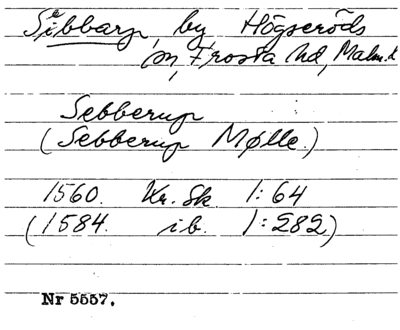 Sibbarp, by Högseröds
sn, Frosta hd, Malm. l.
Sebberup
(Sebberup Mølle.)
1560. Kr. Sk. 1:64
(1584. ib. 1:282)
Nr 5557.